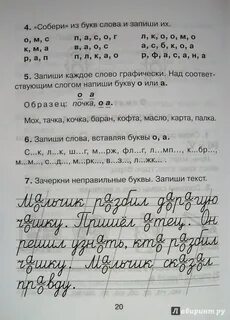 4. «Собери» из букв слова и запиши их.
о, м, с п, а, с, о, г л, к, о, о, м, о
к, м, а в, а, о, с р, о, к, о, в, а
р, а, п п, л, к, а, о р, ф, а, с, а, н
5. Запиши каждое слово графически. Над соответ-
ствующим слогом напиши букву о или а.
о а
Образец: почка,
Мох, тачка, кочка, баран, кофта, масло, карта, палка.
6. Запиши слова, вставляя буквы о, а.
С...к, л...к, ш...г, ф...н...рь, фл...г, л...мп..., к...бр...,
м...м..., с...д..., м...рк..., в...з..., л...жк... .
7. Зачеркни неправильные буквы. Запиши текст.
Мальчик разбил дорогую
чашку. Пришёл отец. Он
решил узнать, кто разбил
чашку. Мальчик сказал
правду.
20
Лабиринт.ру